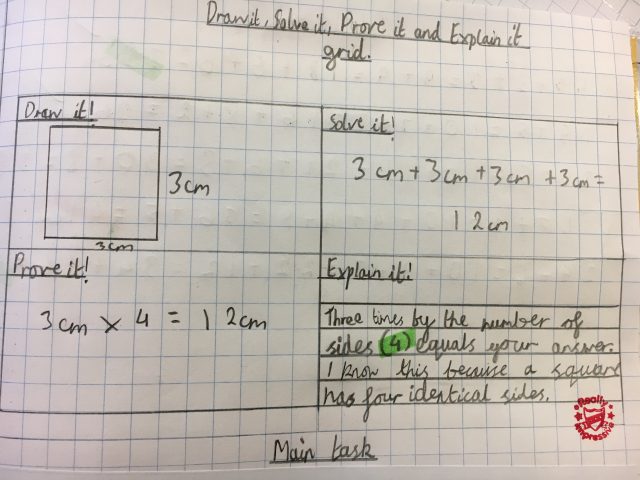 Draw it, Solve it, Prove it and Explain it
grid.
Draw it!
3cm
3cm
Solve it!
3 cm + 3cm + 3cm + 3cm =
12cm
Prove it!
3cm × 4 = 12cm
Explain it!
Three times by the number of
sides (4) equals your answer.
I know this because a square
has four identical sides.
Really
Impressive
Main task